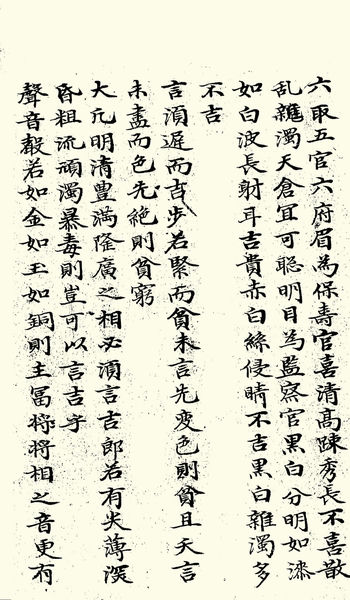 六取五官六府眉為保壽官喜清高踈秀長不喜散
乱雜濁天倉冝可聡明目為監察官黒白分明如漆
如白波長射耳吉貴赤白絲侵睛不吉黒白雜濁多
不吉
言湏遲而吉步若緊而貧未言先変色則貧且夭言
未盡而色先絶則貧窮
大凢明清豊滿隆廣之相必湏言吉郎若有失薄深
昏粗流頑濁暴毒則豈可以言吉乎
聲音嚴若如金如玉如銅則主冨将将相之音更有